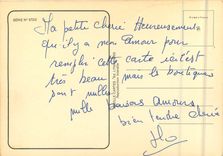 SÉRIE N° 5700
Ma petite chérie Heureusement
qu'il y a mon Amour pour
remplir cette carte ici c'est
très beau mais les boutiques
sont nulles
mille baisers Amours
bien tendre chérie